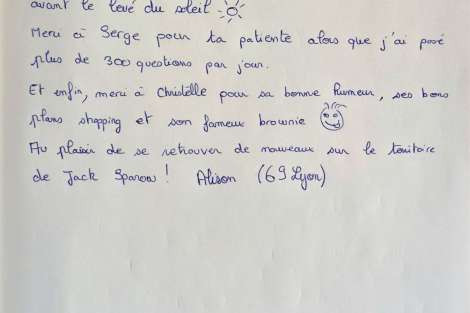 avant le levé du soleil
Merci à Serge pour ta patiente alors que j'ai posé
plus de 300 questions par jour.
Et enfin, merci à Christelle pour sa bonne humeur, ses bons
plans shopping et son fameux brownie
Au plaisir de se retrouver de nouveaux sur le territoire
de Jack Sparow ! Alison (69 Lyon)